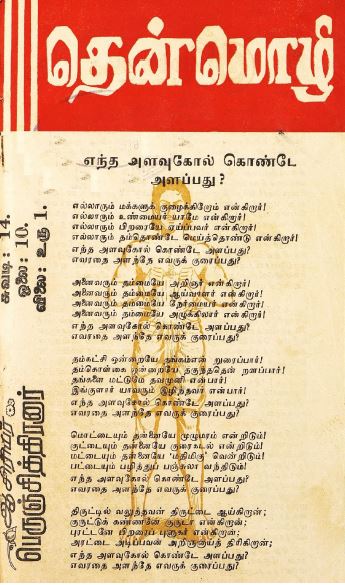 தென்மொழி
எந்த அளவுகோல் கொண்டே
அளப்பது?
எல்லாரும் மக்களுக் குழைக்கிறோம் என்கிறார்!
எல்லாரும் உண்மையர் யாமே என்கிறார்!
எல்லாரும் பிறரையே ஏய்ப்பவர் என்கிறார்!
எல்லாரும் தம்தொண்டே மெய்த்தொண்டு என்கிறார்!
எந்த அளவுகோல் கொண்டே அளப்பது?
எவரதை அளந்தே எவருக் குரைப்பது?
அனைவரும் தம்மையே அறிஞர் என்கிறார்!
அனைவரும் தம்மையே ஆய்வாளர் என்கிறார்!
அனைவரும் தம்மையே நேர்மையர் என்கிறார்!
அனைவரும் தம்மையே அழுக்கிலர் என்கிறார்!
எந்த அளவுகோல் கொண்டே அளப்பது?
எவரதை அளந்தே எவருக் குரைப்பது?
தம்கட்சி ஒன்றையே தங்கம்என் றுரைப்பார்!
தம்கொள்கை ஒன்றையே தகுந்ததென் றளப்பார்!
தங்களை மட்டுமே தவமுனி என்பார்!
இங்குளார் யாவரும் இழிந்தவர் என்பார்!
எந்த அளவுகோல் கொண்டே அளப்பது?
எவரதை அளந்தே எவருக் குரைப்பது?
மொட்டையும் தன்னையே முழுமரம் என்றிடும்!
குட்டையும் தன்னையே குரைகடல் என்றிடும்!
மட்டையும் தன்னையே வென்றிடும்!
பட்டையும் பழித்துப் பஞ்சுரா வந்திடும்!
எந்த அளவுகோல் கொண்டே அளப்பது?
எவரதை அளந்தே எவருக் குரைப்பது?
திருட்டில் வலுத்தவன் திருட்டை ஆய்கிறான்;
குருட்டுக் கண்ணனே குருடா என்கிறான்;
புரட்டனே பிறரைப் புளுகர் என்கிறான்;
அரட்டை அடிப்பவன் அறிஞனாய்த் திரிகிறான்;
எந்த அளவுகோல் கொண்டே அளப்பது?
எவரதை அளந்தே எவருக் குரைப்பது?
சுவடி: 14.
ஓலை: 10.
விலை: உரு 1.
ஆசிரியர்
பெருஞ்சித்திரனார்